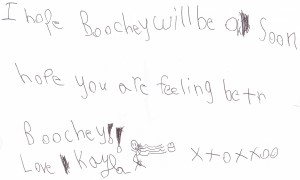 I hope Boochey will be Soon
hope you are feeling betn
Boochey!!
Love Kayla x+oxxoo